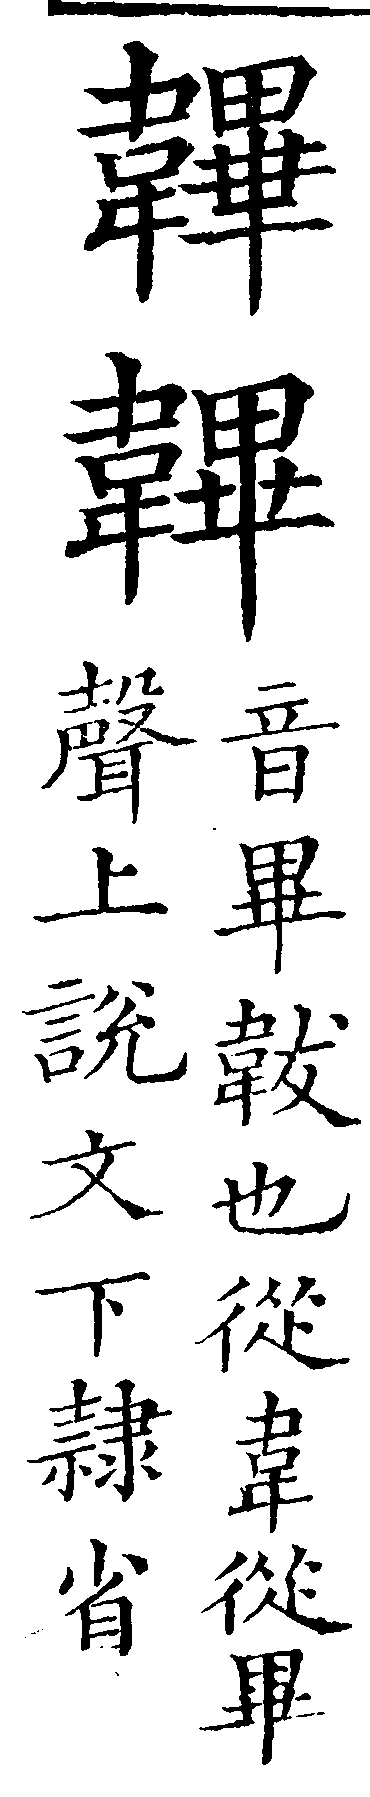 韠
韠
音畢韍也從韋從畢
聲上說文下隸省